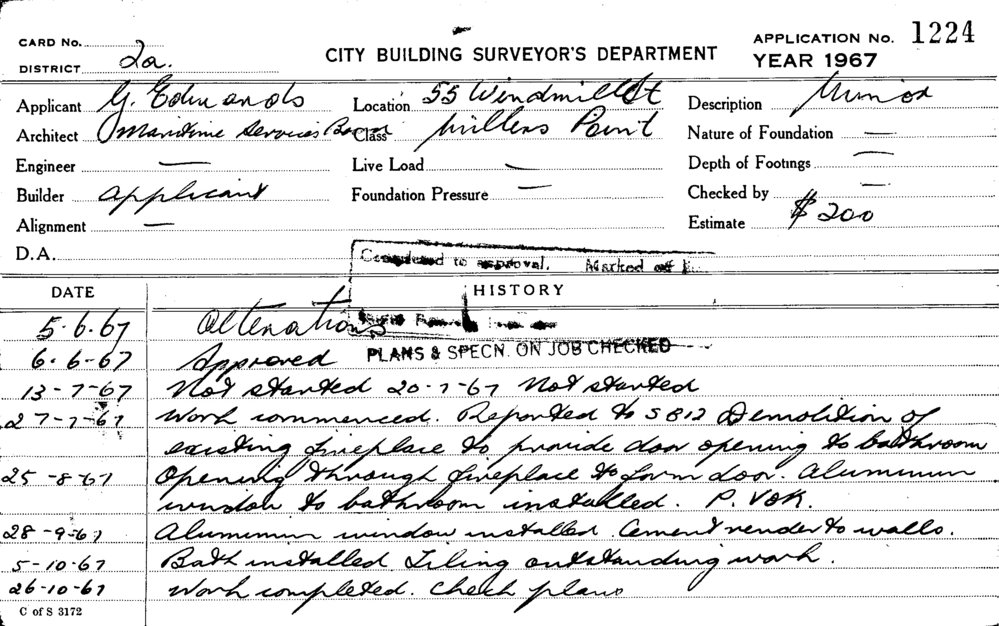 CARD No.
DISTRICT 2a.
CITY BUILDING SURVEYOR'S DEPARTMENT
APPLICATION No. 1224
YEAR 1967
Applicant G. Edwards Location 55 Windmill St Description Minor
Architect Maritime Services Board Class Millers Point Nature of Foundation —
Engineer — Live Load — Depth of Footings —
Builder applicant Foundation Pressure — Checked by —
Alignment — Estimate $200
D.A.
Completed to approval. Marked off
DATE HISTORY
5.6.67 Alterations
6.6-67 Approved
PLANS & SPECN. ON JOB CHECKED
13-7-67 Not started 20-7-67 Not started
27-7-67 Work commenced. Reported to S812 Demolition of
existing fireplace to provide door opening to bathroom
25-8-67 Opening through fireplace to form door. Aluminium
window to bathroom installed. P. VOK.
28-9-67 Aluminium window installed. Cement render to walls.
5-10-67 Bath installed Tiling outstanding work.
26-10-67 Work completed. Check plans
C of S 3172